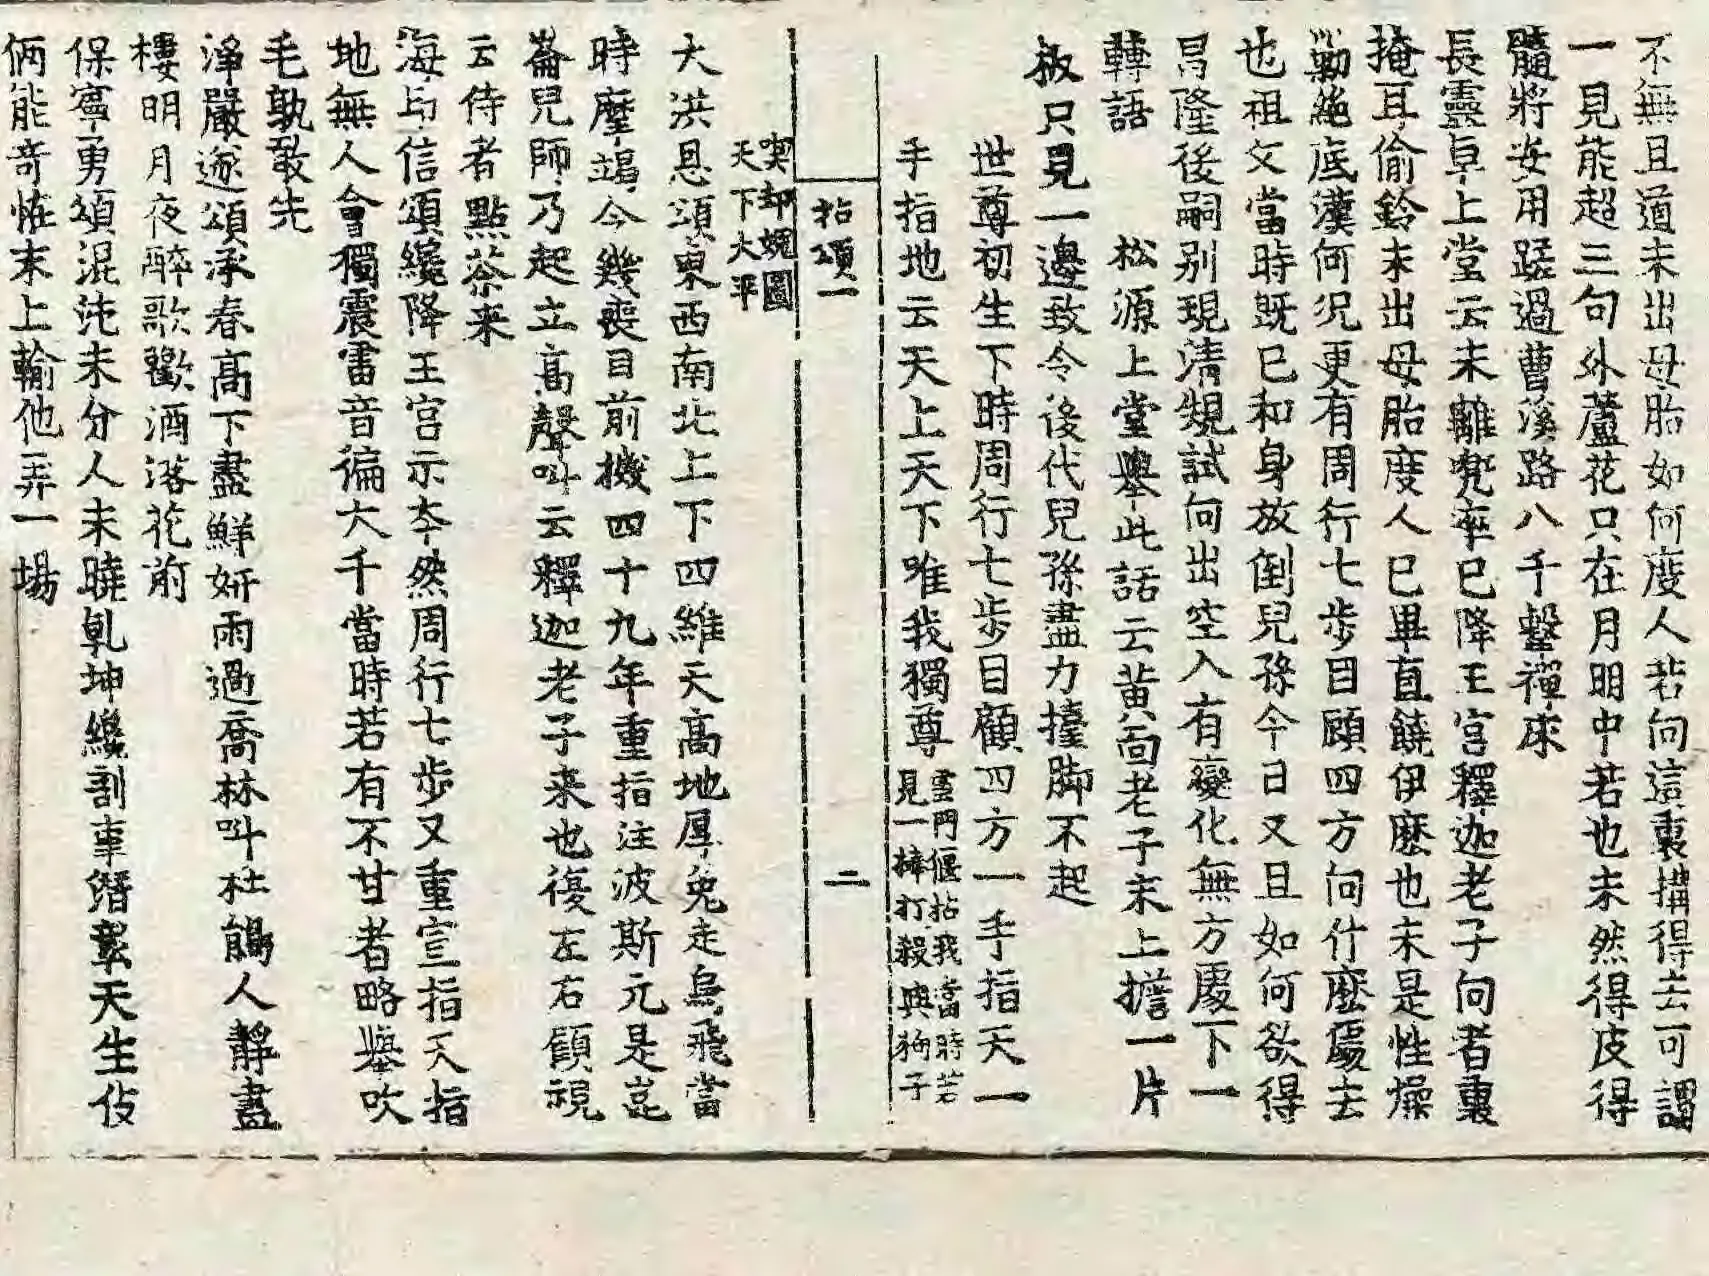 不無且道未出母胎如何度人若向這裏搆得去可謂
一見能超三句外蘆花只在月明中若也未然得皮得
髓將安用蹉過曹溪路八千擊禪床
長靈卓上堂云未離兜率已降王宮釋迦老子向者裏
掩耳偷鈴未出母胎度人已畢直饒伊麽也未是性燥
勦絕底漢何況更有周行七步目顧四方向什麽處去
也祖父當時既已和身放倒兒孫今日又且如何欲得
昌隆後嗣別現清䂓試向出空入有變化無方處下一
轉語
松源上堂舉此話云黃面老子末上擔一片
板只見一邊致令後代兒孫盡力擡脚不起
世尊初生下時周行七步目顧四方一手指天一
手指地云天上天下唯我獨尊
雲門偃拈我當時若
見一棒打殺與狗子
拈頌一
二
喫却媿圖
天下大平
大洪恩頌東西南北上下四維天高地厚兔走烏飛當
時摩竭今幾喪目前機四十九年重指注波斯元是崑
崙兒師乃起立高聲叫云釋迦老子来也復左右顧視
云侍者點茶来
海印信頌纔降王宮示夲然周行七步又重宣指天指
地無人會獨震雷音徧大千當時若有不甘者略舉吹
毛孰敢先
淨嚴遂頌承春高下盡鮮妍雨過喬林叫杜鵑人靜畫
樓明月夜醉歌歡酒落花前
保寧勇頌混沌未分人未曉乹坤纔剖事潛彰天生伎
倆能奇怪末上輸他弄一場